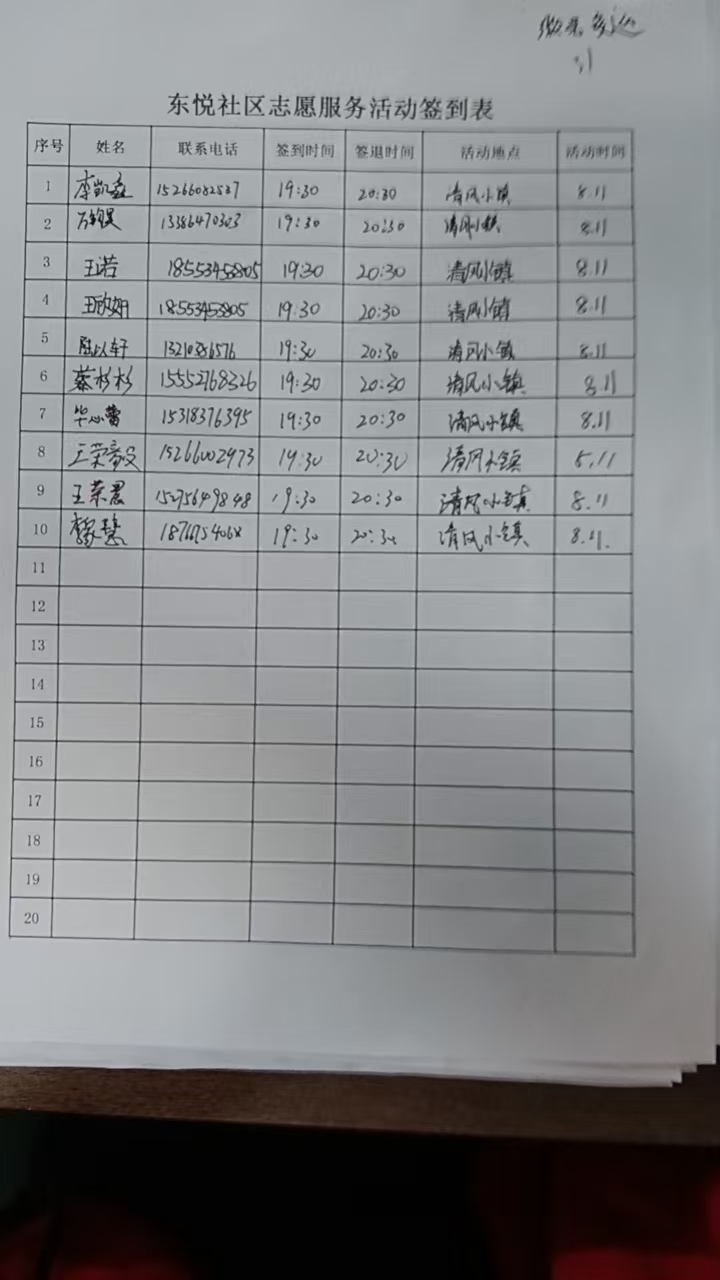 东悦社区志愿服务活动签到表
序号 姓名 联系电话 签到时间 签退时间 活动地点 活动时间
1 李凯鑫 15266082587 19:30 20:30 清风小镇 8.11
2 19:30 20:30 清风小镇 8.11
3 王若 18553453805 19:30 20:30 清风小镇 8.11
4 18553453805 19:30 20:30 清风小镇 8.11
5 陆以轩 13210886576 19:30 20:30 清风小镇 8.11
6 蔡杉杉 15552768326 19:30 20:30 清风小镇 8.11
7 毕心蕾 15318376395 19:30 20:30 清风小镇 8.11
8 王荣 15266002973 19:30 20:30 清风小镇 8.11
9 王荣晨 19:30 20:30 清风小镇 8.11
10 19:30 20:30 清风小镇 8.11.
11
12
13
14
15
16
17
18
19
20